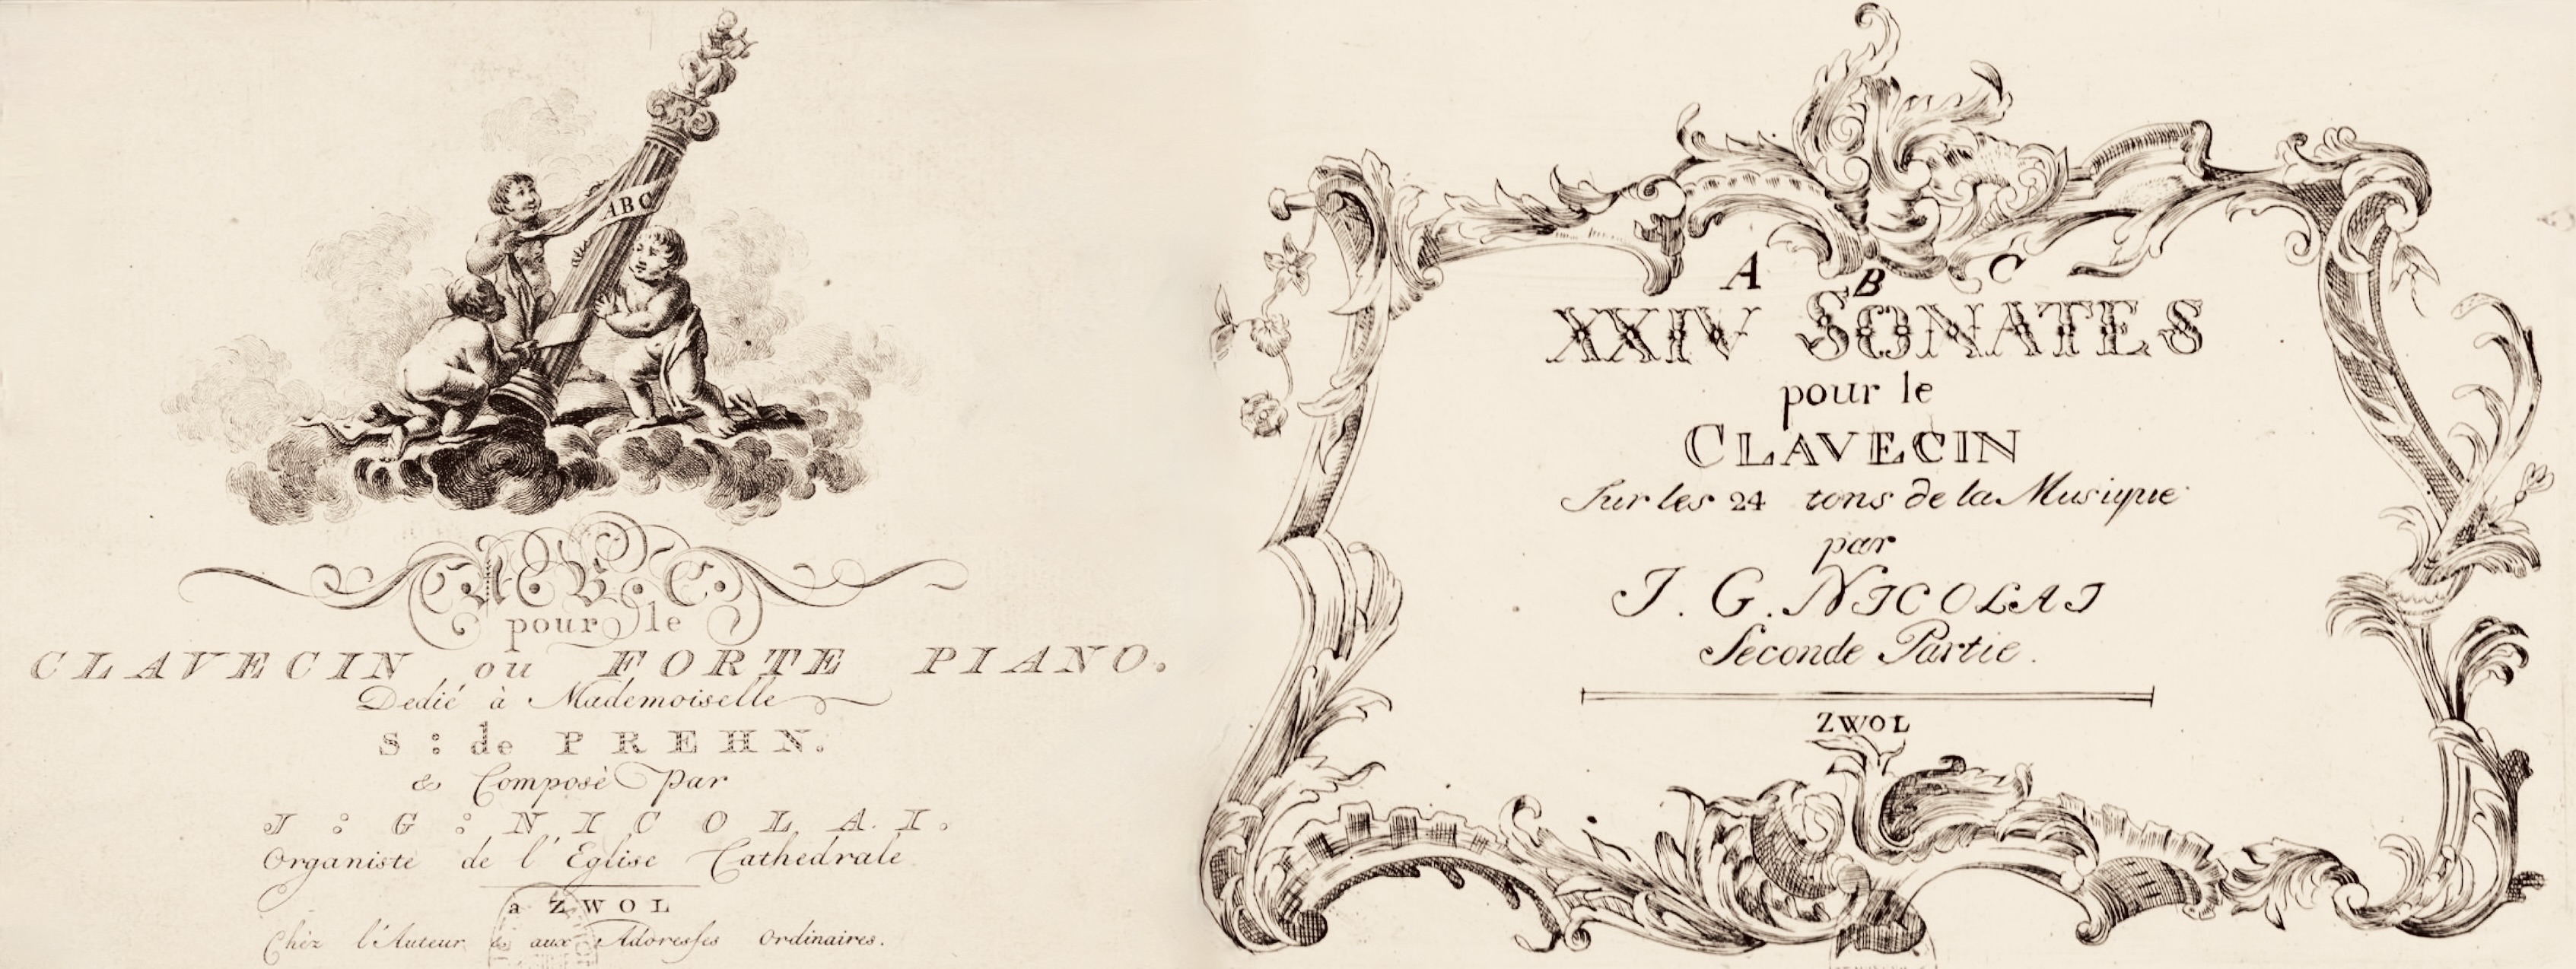 ABC
A. B. C.
pour le
CLAVECIN ou FORTE PIANO.
Dedié à Mademoiselle
S : de PREHN.
& Composè Par
J : G : NICOLAI.
Organiste de l'Eglise Cathedrale
a ZWOL
Chèz l'Auteur & aux Adresses Ordinaires.
A B C
XXIV SONATES
pour le
CLAVECIN
Sur les 24 tons de la Musique
par
J. G. NICOLAI
Seconde Partie.
ZWOL